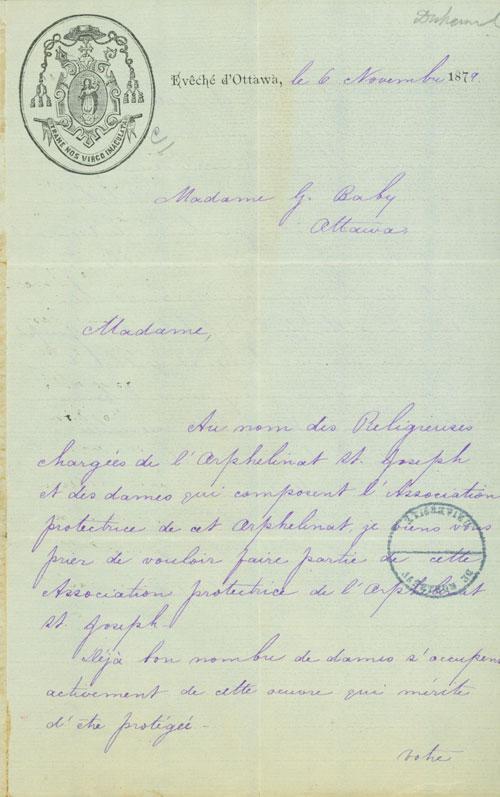 Duhamel
TRAHE NOS VIRGO IMMACULATA
Evêché d'Ottawa, le 6 Novembre 1879
Madame G. Baby
Ottawa
Madame,
Au nom des Religieuses
chargées de l'Orphelinat St. Joseph
et des dames qui composent l'Association
protectrice de cet Orphelinat je viens vous
prier de vouloir faire partie de cette
Association protectrice de l'Orphelinat
St. Joseph.
Déjà bon nombre de dames s'occupent
activement de cette œuvre qui mérite
d'être protégée.
votre